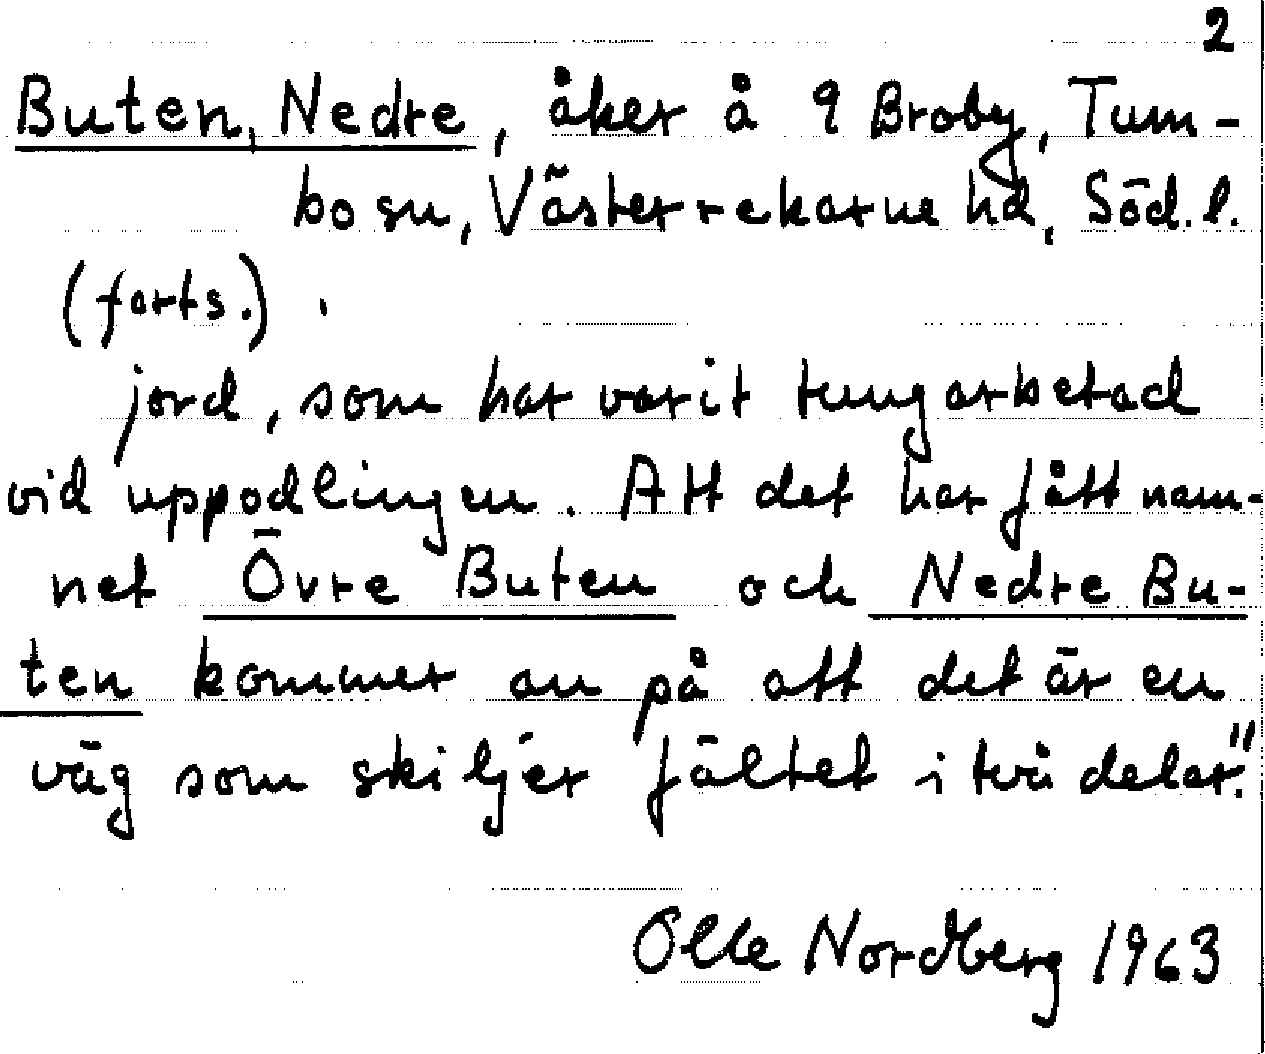 2
Buten, Nedre, åker å 9 Broby, Tum-
bo sn, Västerrekarne hd, Söd. l.
(forts.).
jord, som har varit tungarbetad
vid uppodlingen. Att det har fått nam-
net Övre Buten och Nedre Bu-
ten kommer an på att det är en
väg som skiljer fältet i två delar."
Olle Nordberg 1963